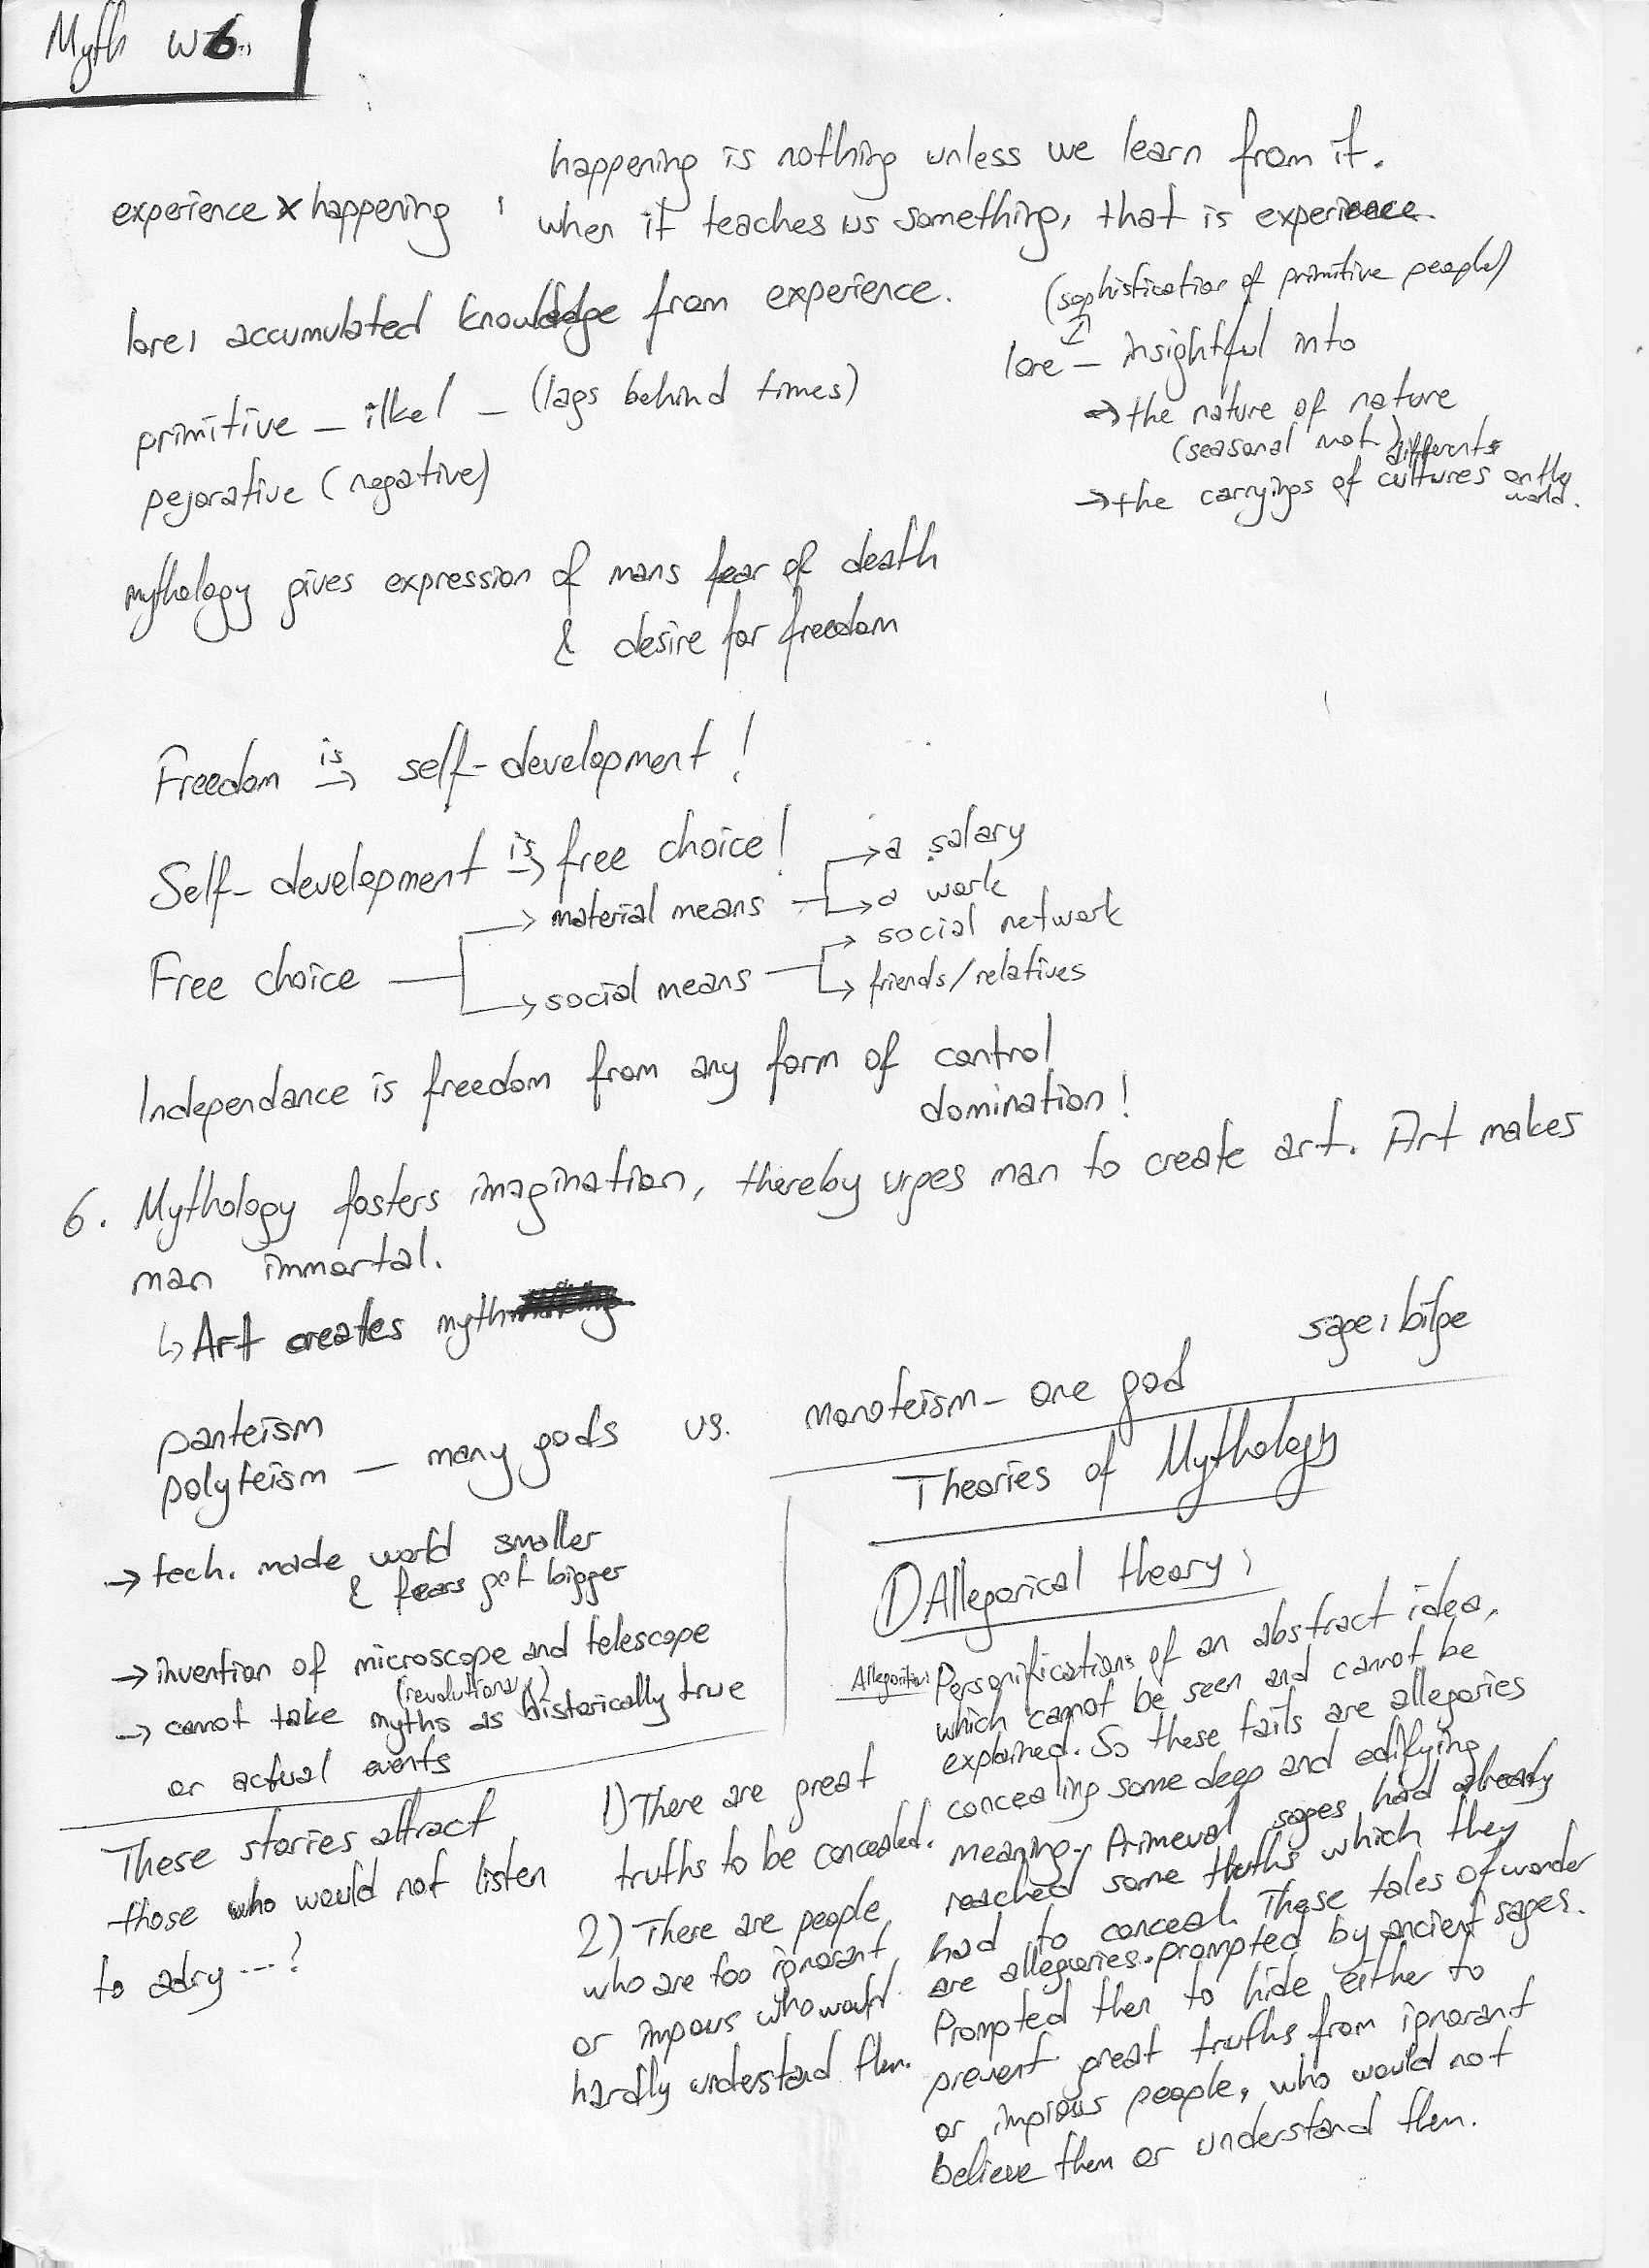 Myth w6
happening is nothing unless we learn from it.
experience x happening : when it teaches us something, that is experience.
lore: accumulated knowledge from experience.
(sophistication of primitive people)
lore – insightful into
→ the nature of nature
(seasonal not) differents
→ the carryings of cultures on the world.
primitive – ilkel – (lags behind times)
pejorative (negative)
mythology gives expression of mans fear of death
& desire for freedom
Freedom is → self-development!
Self-development is → free choice!
Free choice
→ material means
→ a salary
→ a work
→ social means
→ social network
→ friends/relatives
Independance is freedom from any form of control
domination!
6. Mythology fosters imagination, thereby urges man to create art. Art makes
man immortal.
↳ Art creates myth
sage: bilge
panteism
polyteism – many gods vs. monoteism – one god
→ tech. made world smaller
& fears got bigger
→ invention of microscope and telescope
(revolutionary)
→ cannot take myths as historically true
or actual events
These stories attract
those who would not listen
to adry ---?
Theories of Mythology
1) Allegorical theory:
Personifications of an abstract idea,
which cannot be seen and cannot be
explained. So these tails are allegories
concealing some deep and edifying
meaning. Primeval sages had already
reached some truths which they
had to conceal. These tales of wonder
are allegories prompted by ancient sages.
Prompted then to hide either to
prevent great truths from ignorant
or impious people, who would not
believe them or understand them.
1) There are great
truths to be concealed.
2) There are people
who are too ignorant
or impous who would
hardly understand them.